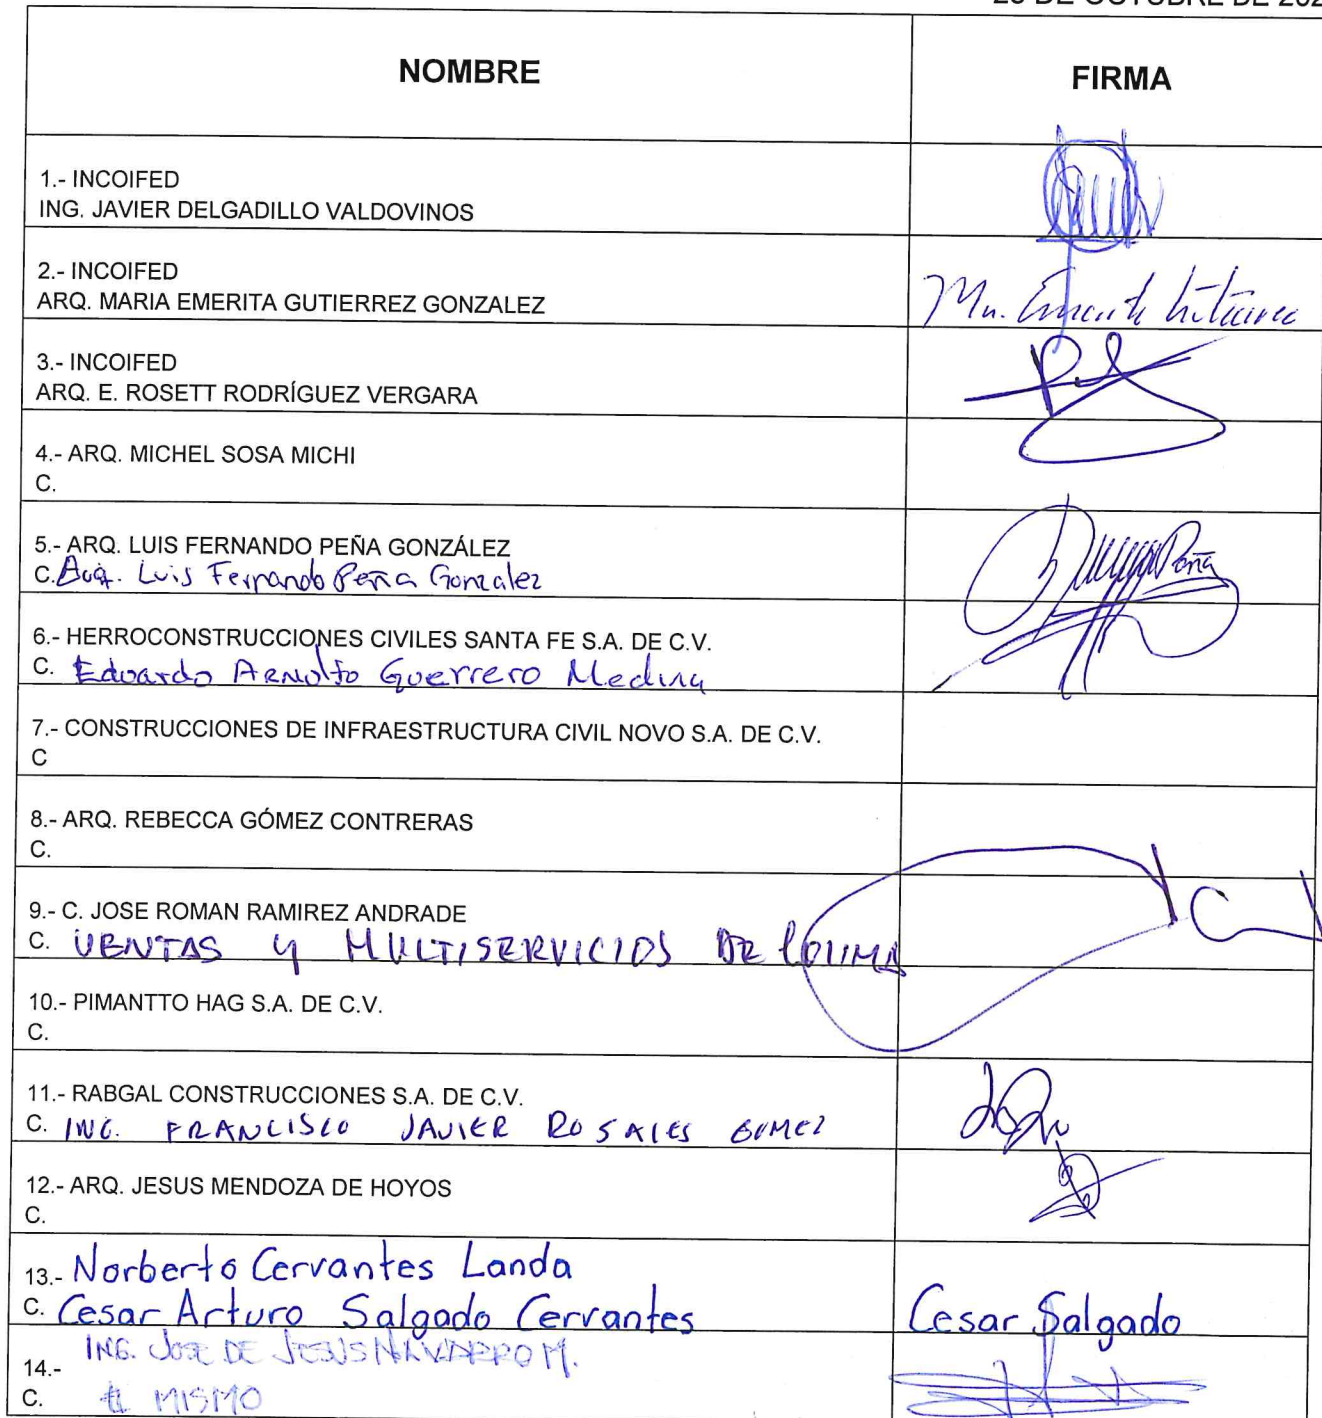 DE OCTUBRE DE 202
NOMBRE
FIRMA
1.- INCOIFED
ING. JAVIER DELGADILLO VALDOVINOS
2.- INCOIFED
ARQ. MARIA EMERITA GUTIERREZ GONZALEZ
3.- INCOIFED
ARQ. E. ROSETT RODRÍGUEZ VERGARA
4.- ARQ. MICHEL SOSA MICHI
C.
5.- ARQ. LUIS FERNANDO PEÑA GONZÁLEZ
C. Arq. Luis Fernando Peña Gonzalez
Peña
6.- HERROCONSTRUCCIONES CIVILES SANTA FE S.A. DE C.V.
C. Eduardo Arnolfo Guerrero Medina
7.- CONSTRUCCIONES DE INFRAESTRUCTURA CIVIL NOVO S.A. DE C.V.
C
8.- ARQ. REBECCA GÓMEZ CONTRERAS
C.
9.- C. JOSE ROMAN RAMIREZ ANDRADE
C. VENTAS Y MULTISERVICIOS DE COLIMA
10.- PIMANTTO HAG S.A. DE C.V.
C.
11.- RABGAL CONSTRUCCIONES S.A. DE C.V.
C. ING. FRANCISCO JAVIER ROSALES GOMEZ
12.- ARQ. JESUS MENDOZA DE HOYOS
C.
13.- Norberto Cervantes Landa
C. Cesar Arturo Salgado Cervantes
Cesar Salgado
14.- ING. JOSE DE JESUS NAVARRO M.
C. EL MISMO